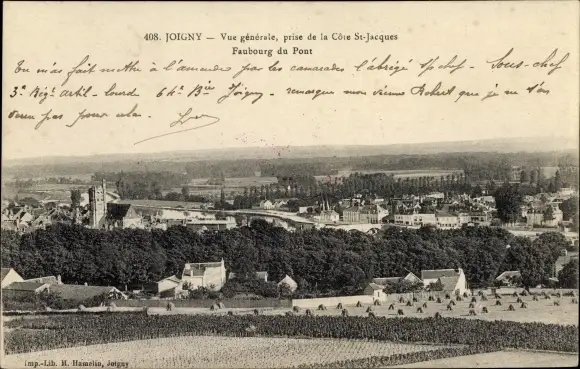 408. JOIGNY — Vue générale, prise de la Côte St-Jacques
Faubourg du Pont
Tu m'as fait mettre à l'amende par les camarades l'abrégé Sous-chef
3e Rég. artil. lourd 64e Bie Joigny. remarque mon vieux Robert que je ne t'en
veux pas pour cela.
Imp.-Lib. H. Hamelin, Joigny